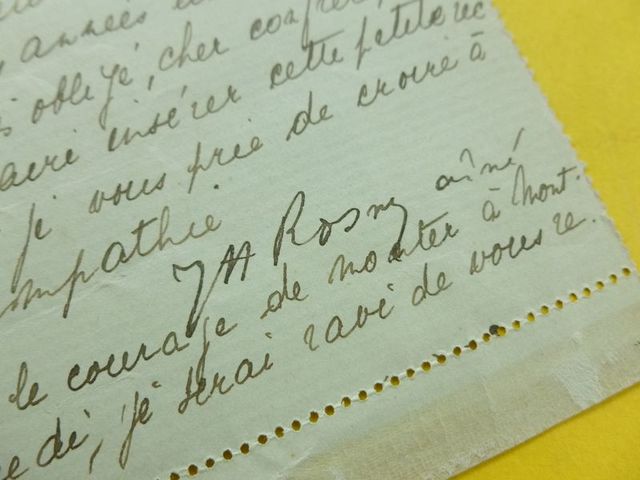 , années
obligé, cher confrère,
insérer cette petite rec
je vous prie de croire à
mpathie.
JH Rosny aîné
le courage de monter à Mont-
edi, je serai ravi de vous re-